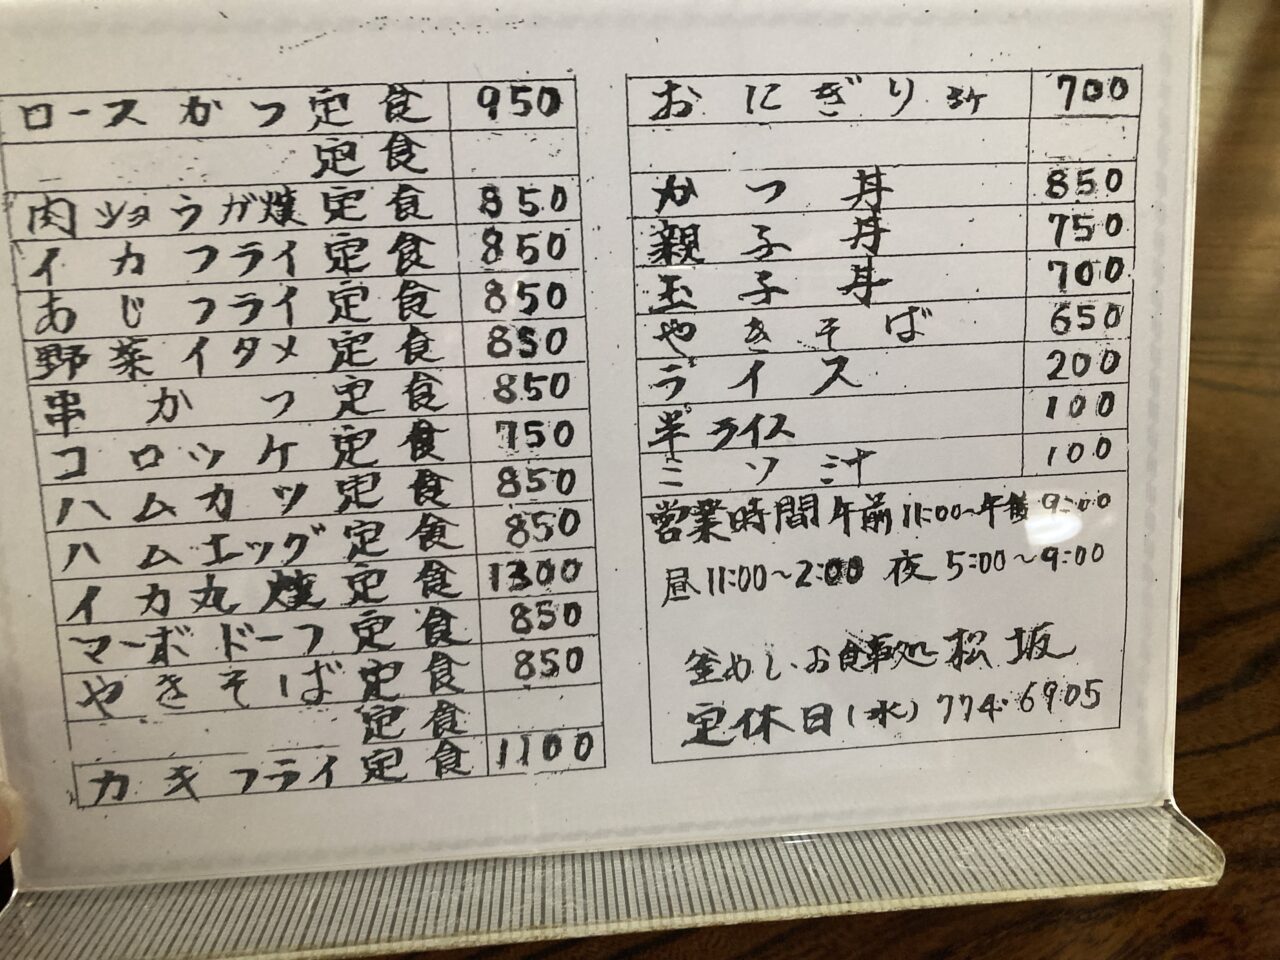 ロースかつ定食 950
定食
肉ショウガ焼定食 850
イカフライ定食 850
あじフライ定食 850
野菜イタメ定食 850
串かつ定食 850
コロッケ定食 750
ハムカツ定食 850
ハムエッグ定食 850
イカ丸焼定食 1300
マーボドーフ定食 850
やきそば定食 850
定食
カキフライ定食 1100
おにぎり 3ケ 700
かつ丼 850
親子丼 750
玉子丼 700
やきそば 650
ライス 200
半ライス 100
ミソ汁 100
営業時間 午前11:00〜午後9:00
昼11:00〜2:00 夜5:00〜9:00
釜めし、お食事処 松坂
定休日(水) 774-6905